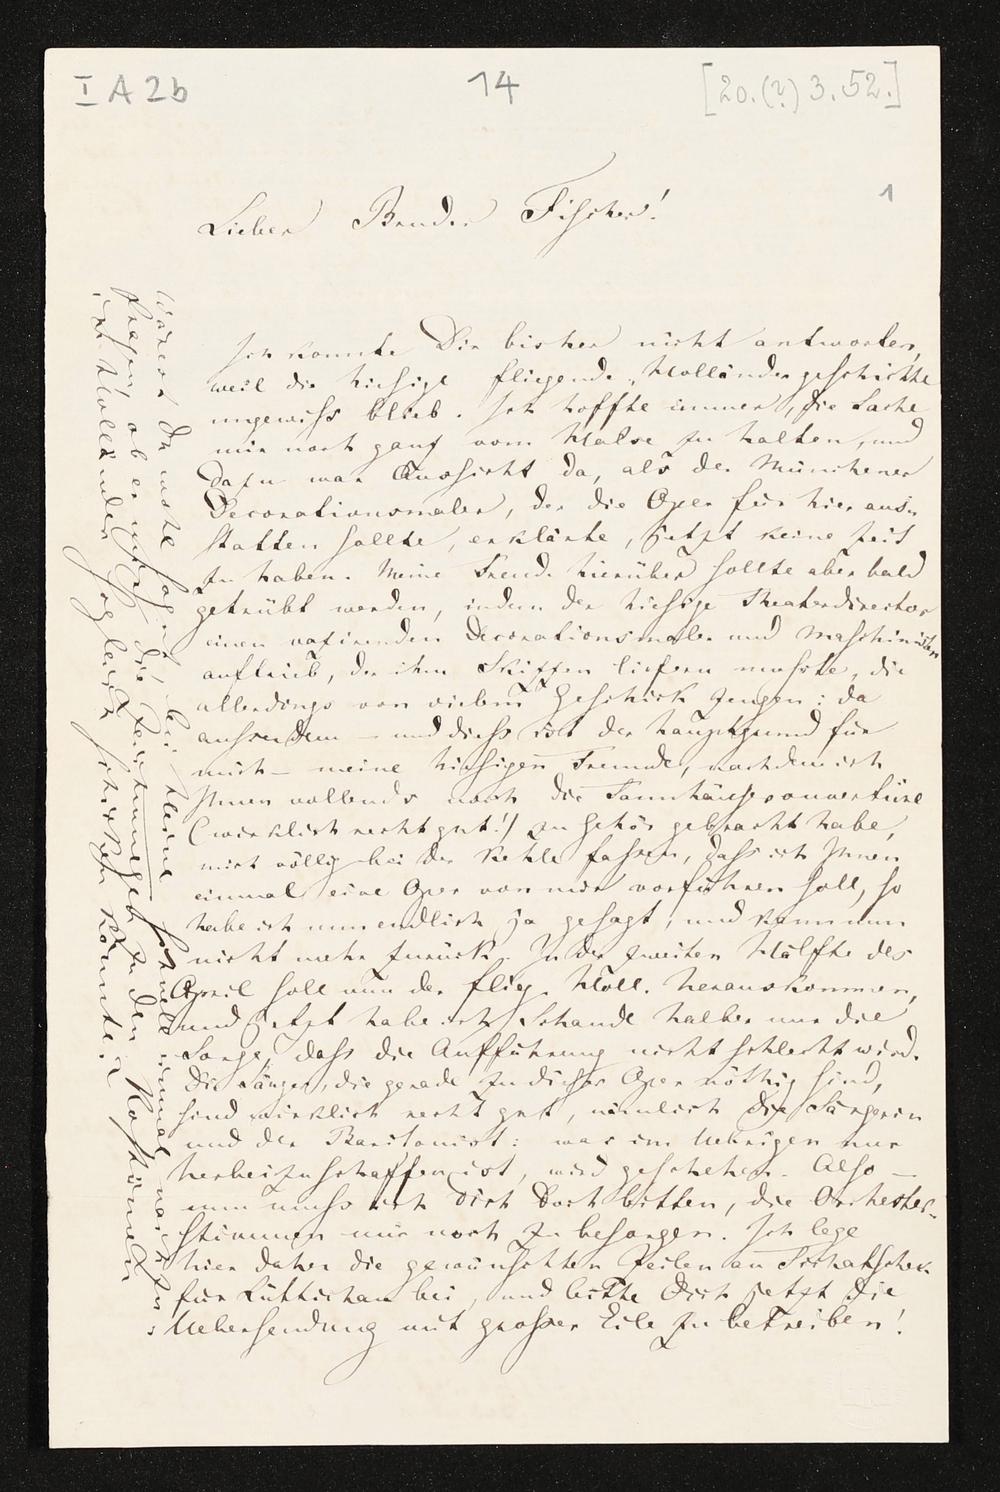 I A 2b
14
[20.(?) 3.52.]
1
Lieber Bruder Fischer!
Ich konnte Dir bisher nicht antworten,
weil die hiesige fliegende-Holländergeschichte
ungewiss blieb. Ich hoffte immer, die Sache
mir noch ganz vom Halse zu halten, und
dazu war Aussicht da, als der Münchener
Decorationsmaler, der die Oper für hier aus-
statten sollte, erklärte, jetzt keine Zeit
zu haben. Meine Freude hierüber sollte aber bald
getrübt werden, indem der hiesige Theaterdirector
einen vazirenden Decorationsmaler und Maschinisten
auftrieb, der ihm Skizzen liefern musste, die
allerdings von vielem Geschick zeugen: da
ausserdem — und diess ist der hauptgrund für
mich — meine hiesigen Freunde, nachdem ich
Ihnen vollends noch die Tannhäuserouvertüre
(wirklich recht gut!) zu Gehör gebracht habe,
mich völlig bei der Kehle fassen, dass ich Ihnen
einmal eine Oper von mir vorführen soll, so
habe ich nun endlich ja gesagt, und kann nun
nicht mehr zurück. In der zweiten Hälfte des
April soll nun der flieg. Holl. herauskommen,
und jetzt habe ich Schande halber nur die
Sorge, dass die Aufführung nicht schlecht wird.
Die Sänger, die gerade zu dieser Oper nöthig sind,
sind wirklich recht gut, nämlich die Sängerin
und der Baritonist: was im Uebrigen nur
herbeizuschaffen ist, wird geschehen. Also —
nun muss ich Dich doch bitten, die Orchester-
stimmen mir noch zu besorgen. Ich lege
hier daher die gewünschten Zeilen an Tichatschek
für Lüttichau bei, und bitte Dich jetzt die
Uebersendung mit grosser Eile zu betreiben!
die Zeichnungen zu den Kostümen
im Holländer sogleich schicken könnte.